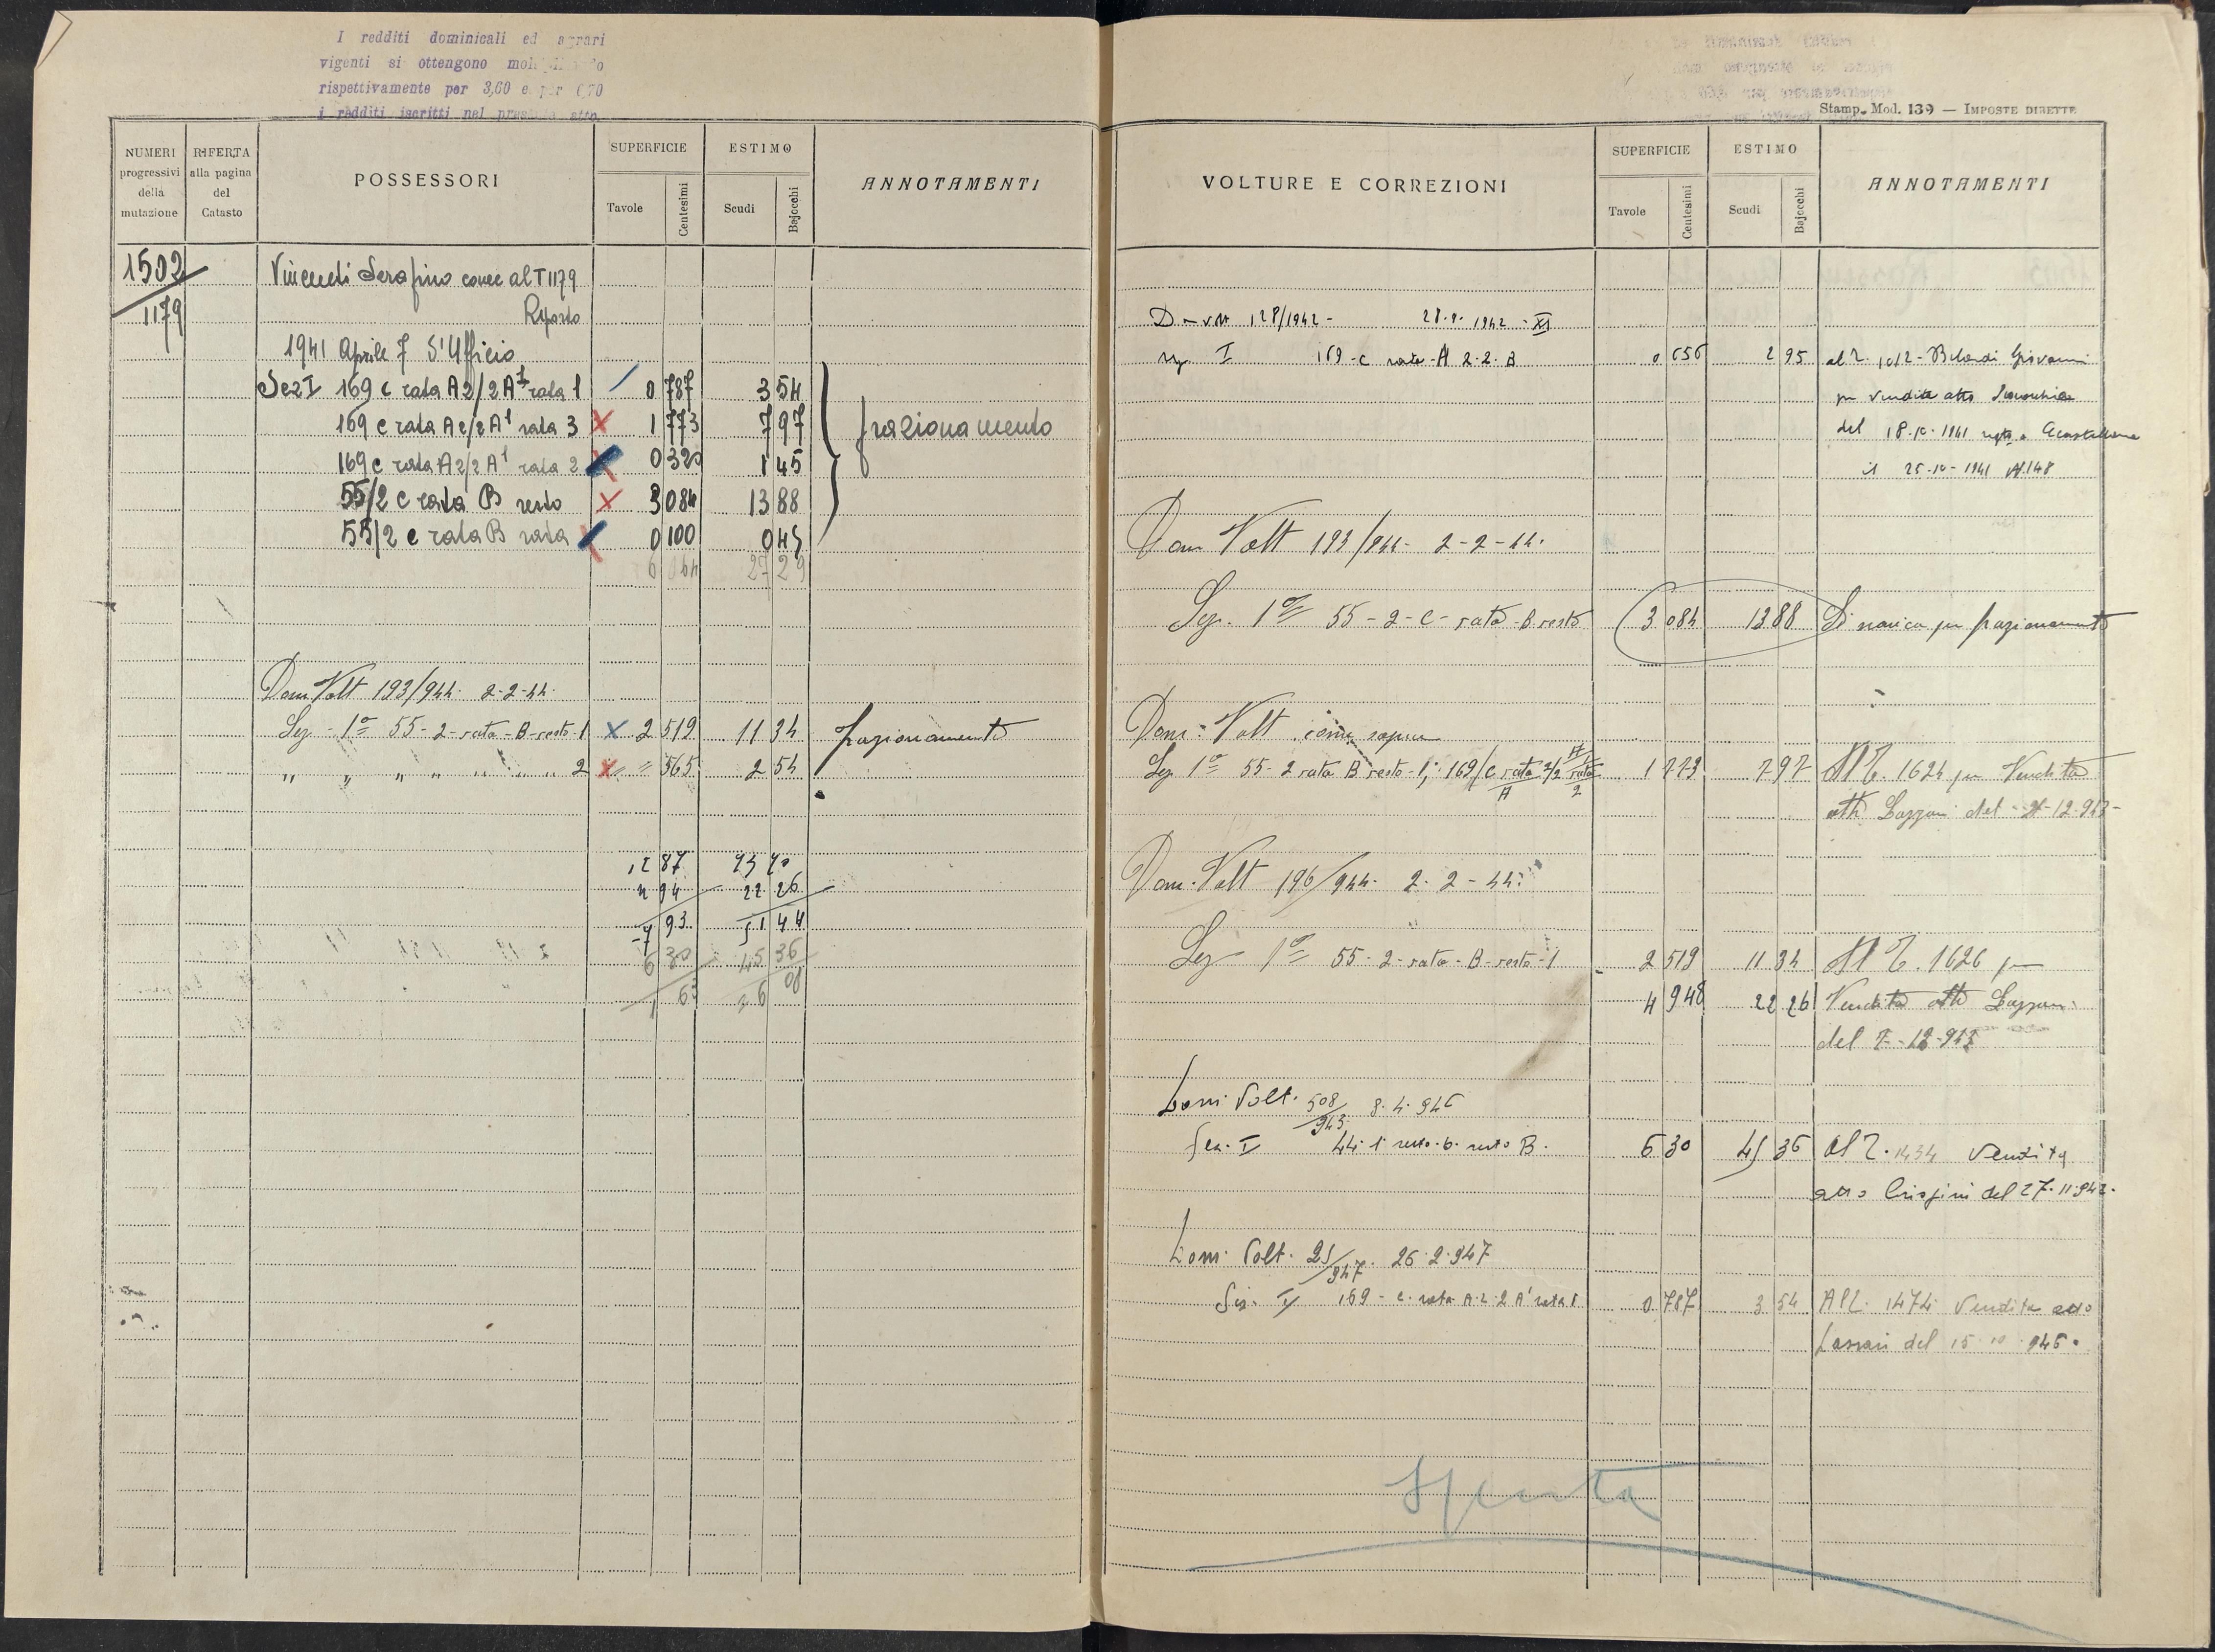 I redditi dominicali ed agrari
vigenti si ottengono
rispettivamente per 3,60 e per 6,70
i redditi iscritti nel presente atto.
NUMERI progressivi della mutazione
RIFERTA alla pagina del Catasto
POSSESSORI
SUPERFICIE
Tavole
Centesimi
ESTIMO
Scudi
Bajocchi
ANNOTAMENTI
1502
1179
Serafino come al T 1179
Riporto
1941 Aprile 7 S'Ufficio
Sez I 169 c rata A2/2A¹ rata 1 0 787 3 54
169 c rata A2/2A¹ rata 3 1 773 7 97
169 c rata A2/2A¹ rata 2 0 320 1 45
55/2 c rata B resto 3 084 13 88
55/2 c rata B rata 0 100 0 45
frazionamento
6 064 27 29
Dom Volt 193/944. 2-2-44.
Sez - 1ª 55-2-rata-B-resto-1 2 519 11 34 frazionamento
" " " " " " " 2 = 565 2 54
12 87 73 70
4 94 22 26
7 93 51 44
6 30 45 36
1 63 6 08
Stamp. Mod. 139 — IMPOSTE DIRETTE
VOLTURE E CORREZIONI
SUPERFICIE
Tavole
Centesimi
ESTIMO
Scudi
Bajocchi
ANNOTAMENTI
128/1942 - 28.9.1942 - XX
I 169-c rata-A 2-2-B 0 656 2 95 al T. 1012 - Giovanni
per vendita atto
del 18.10.1941 Acquapendente
il 25-10-1941 N. 148
Dom Volt 193/944- 2-2-44.
Sez. 1ª 55-2-C-rata-B resto 3 084 13 88 Si scarica per frazionamento
Dom: Volt come sopra
Sez 1ª 55-2 rata B resto-1; 169/C rata 2/2 rata 1 773 7 97 Al T. 1624 per Vendita
A A 2
atto Lazzari del -12-943-
Dom. Volt 196/944. 2-2-44.
Sez 1ª 55-2-rata-B-resto-1 2 519 11 34 Al T. 1626 per
4 948 22 26 Vendita atto Lazzari
del 7-12-943
Dom Volt. 508/943 8.4.946
Sez. I 44.1 resto.6. resto B. 6 30 45 36 Al T. 1434 Vendita
atto Crispini del 27.11.942.
Dom. Volt. 25/947. 26.2.947
Sez. I 169-c. rata A.2.2 A' rata 1 0 787 3 54 Al T. 1474 Vendita atto
Lazzari del 15 10 946.
Spenta